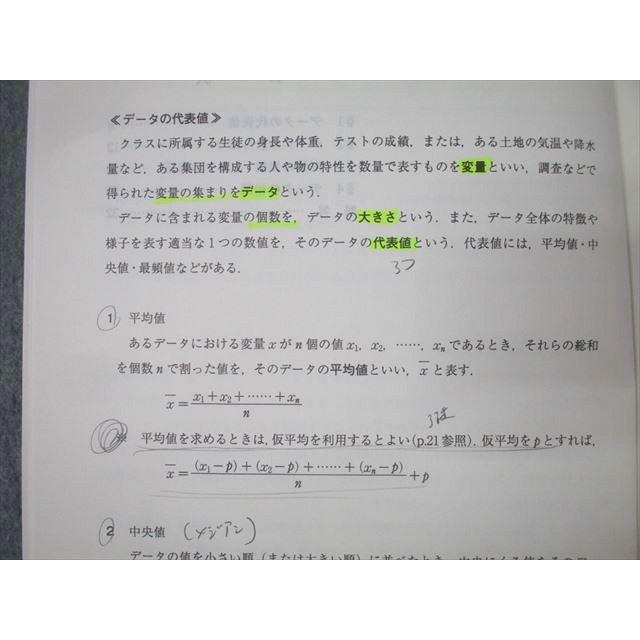 ≪データの代表値≫
クラスに所属する生徒の身長や体重，テストの成績，または，ある土地の気温や降水
量など，ある集団を構成する人や物の特性を数量で表すものを変量といい，調査などで
得られた変量の集まりをデータという．
データに含まれる変量の個数を，データの大きさという．また，データ全体の特徴や
様子を表す適当な1つの数値を，そのデータの代表値という．代表値には，平均値・中
央値・最頻値などがある．
3つ
1 平均値
あるデータにおける変量 x が n 個の値 x₁，x₂，……，xₙ であるとき，それらの総和
を個数 n で割った値を，そのデータの平均値といい，x̄ と表す．
x̄ = (x₁+x₂+……+xₙ)/n
平均値を求めるときは，仮平均を利用するとよい(p.21参照)．仮平均を p とすれば，
x̄ = ((x₁−p)+(x₂−p)+……+(xₙ−p))/n + p
2 中央値 (メジアン)
データの値を小さい順（または大きい順）に並べたとき，中央にくる値を